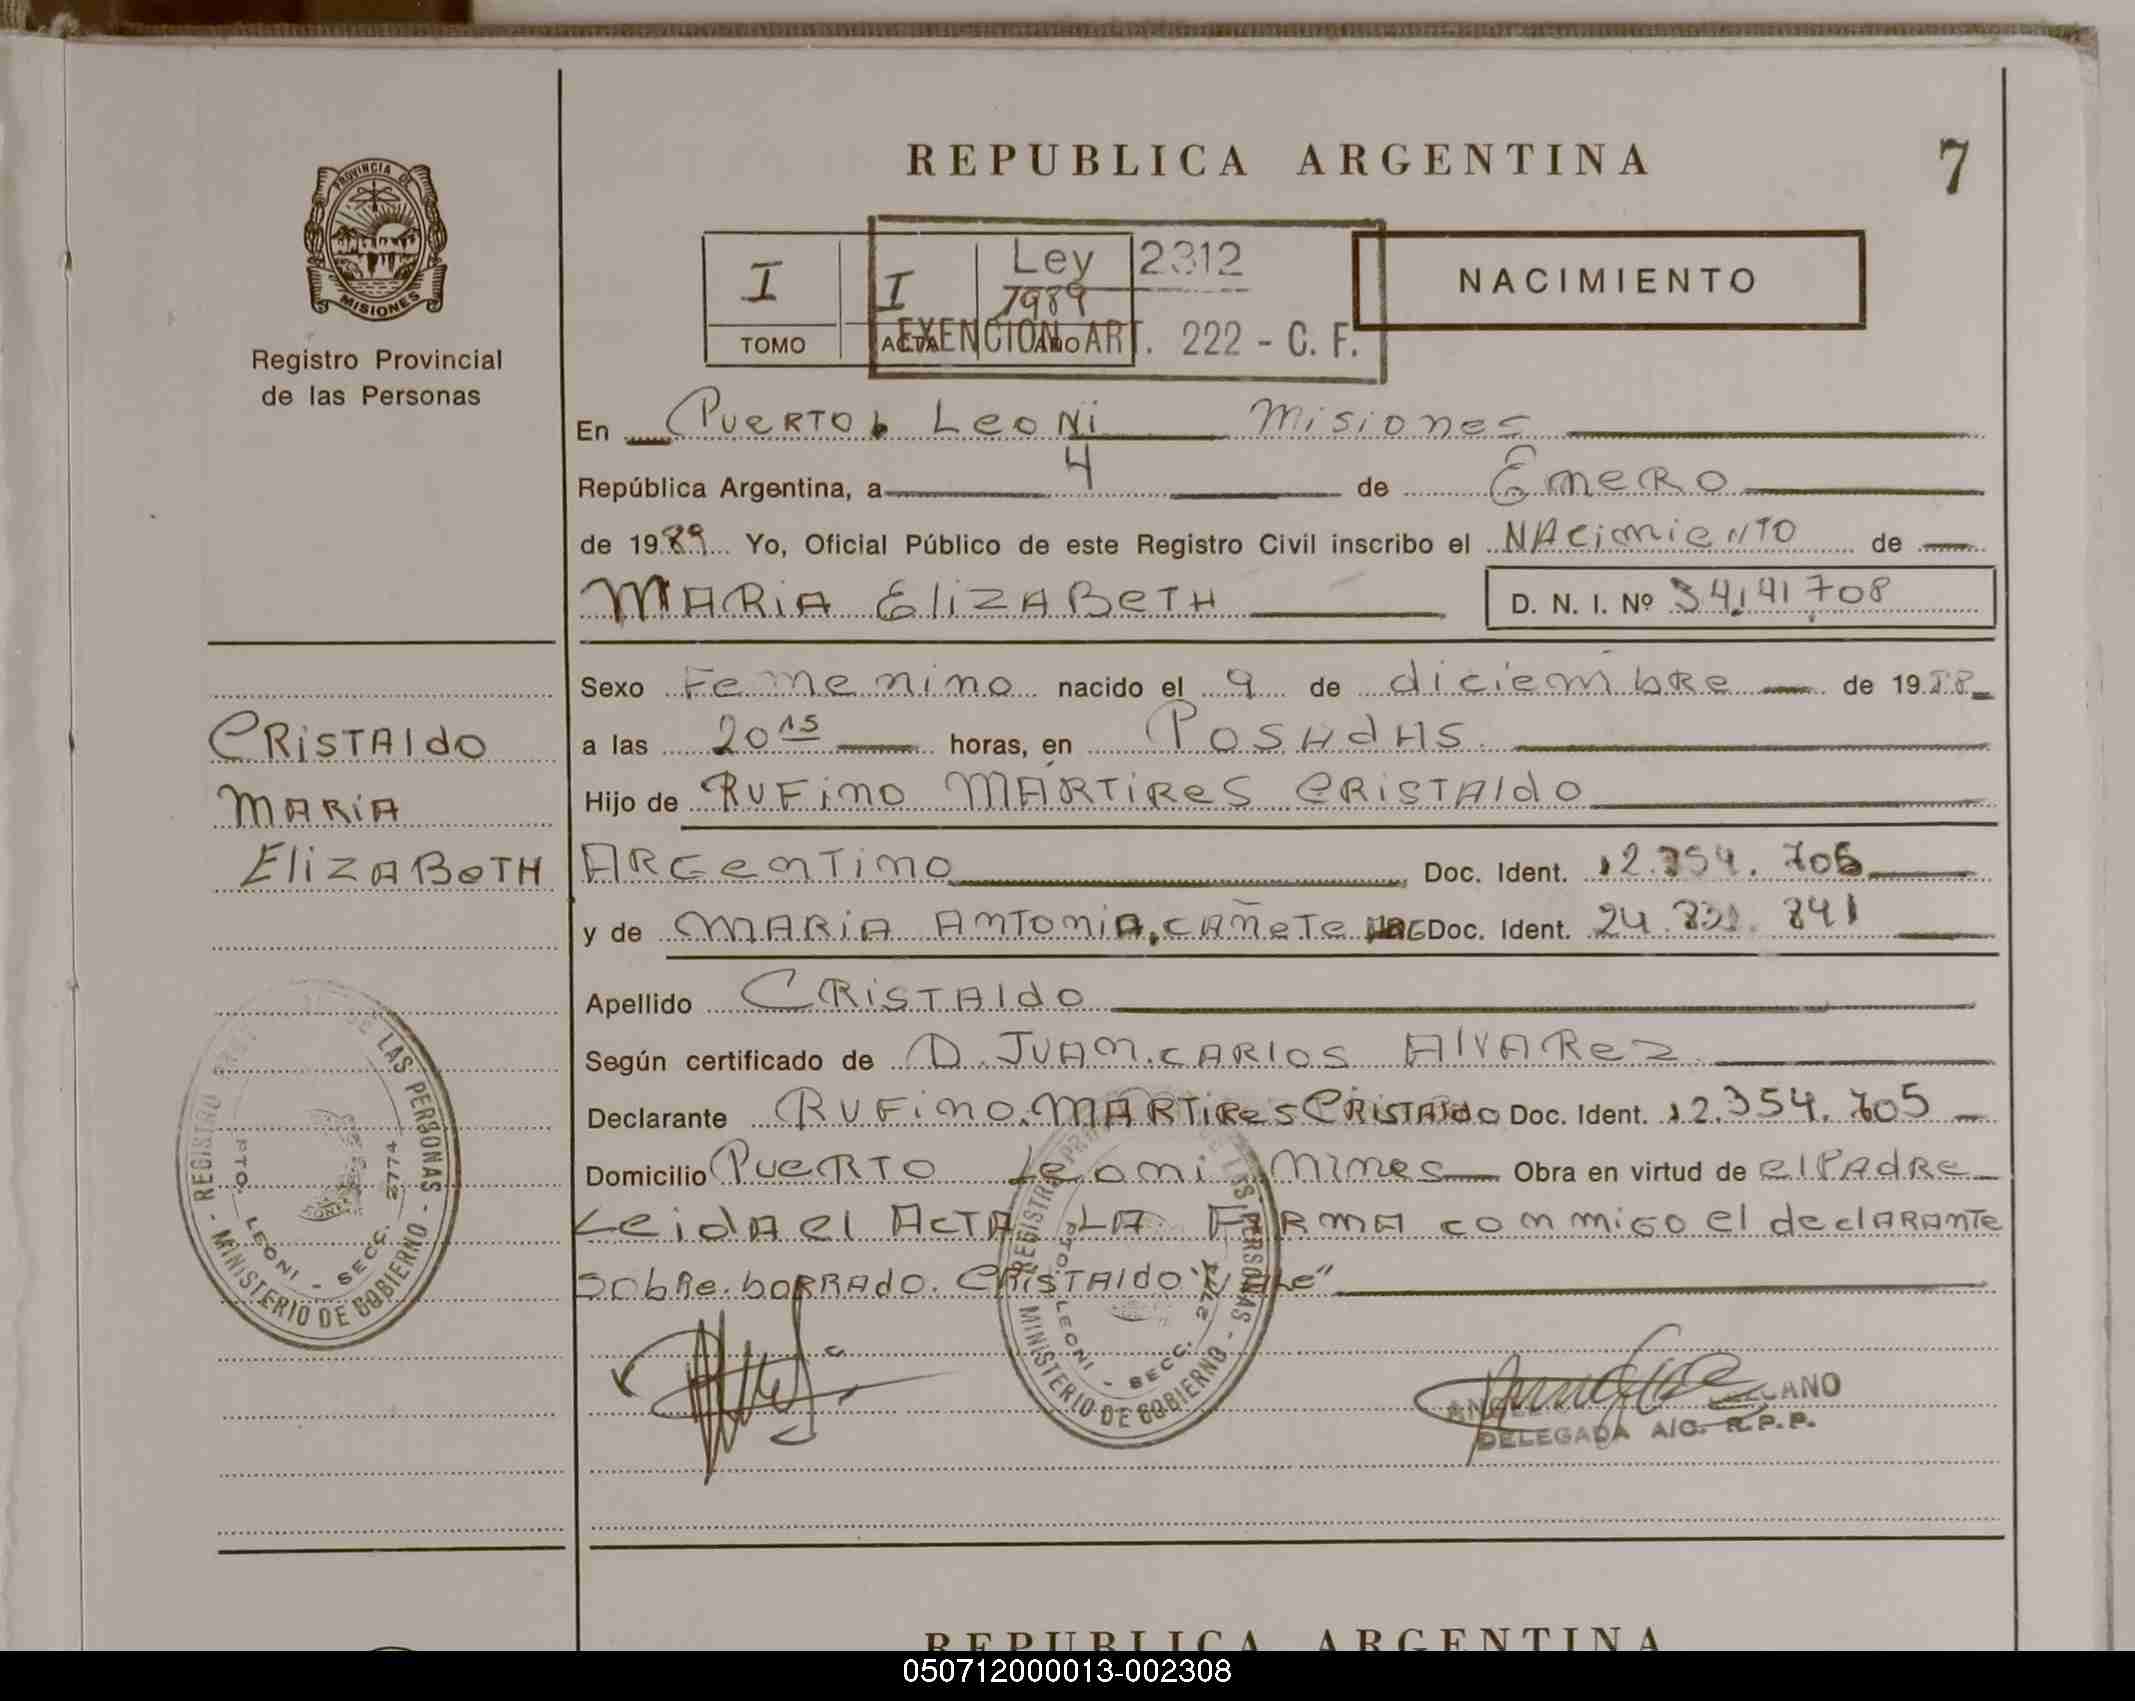 REPUBLICA ARGENTINA
7
PROVINCIA DE
MISIONES
Registro Provincial
de las Personas
I
TOMO
I
ACTA
1989
AÑO
Ley 2312
EXENCION ART. 222 - C. F.
NACIMIENTO
En Puerto Leoni Misiones
República Argentina, a 4 de Enero
de 1989 Yo, Oficial Público de este Registro Civil inscribo el NAcimiento de
MARiA ElizABeTH
D. N. I. Nº 34.141.708
Sexo Femenino nacido el 9 de diciembre de 1988
a las 20 15 horas, en PosAdAs
Hijo de RuFino MARTiRes CRiSTAldo
CRiSTAldo
MARiA
ElizABeTH
ARGenTino Doc. Ident. 12.354.705
y de MARiA AnToniA CAñeTe ARG Doc. Ident. 24. 841
Apellido CRiSTAldo
Según certificado de D. JUAn CARlos AlvARez
Declarante RuFino MARTiRes CRiSTAldo Doc. Ident. 12.354.705
Domicilio PueRTO Leoni Mnes Obra en virtud de el PAdRe
LeidA el AcTA LA FiRmA conmiGo el declARAnTe
SobRe borRAdo. CRiSTAldo "VAle"
REGISTRO DE LAS PERSONAS
- MINISTERIO DE GOBIERNO -
PTO. LEONI - SECC. 2774
REGISTRO PRO DE LAS PERSONAS
- MINISTERIO DE GOBIERNO -
PTO. LEONI - SECC. 2774
DELEGADA A/C. R.P.P.
REPUBLICA ARGENTINA
050712000013-002308